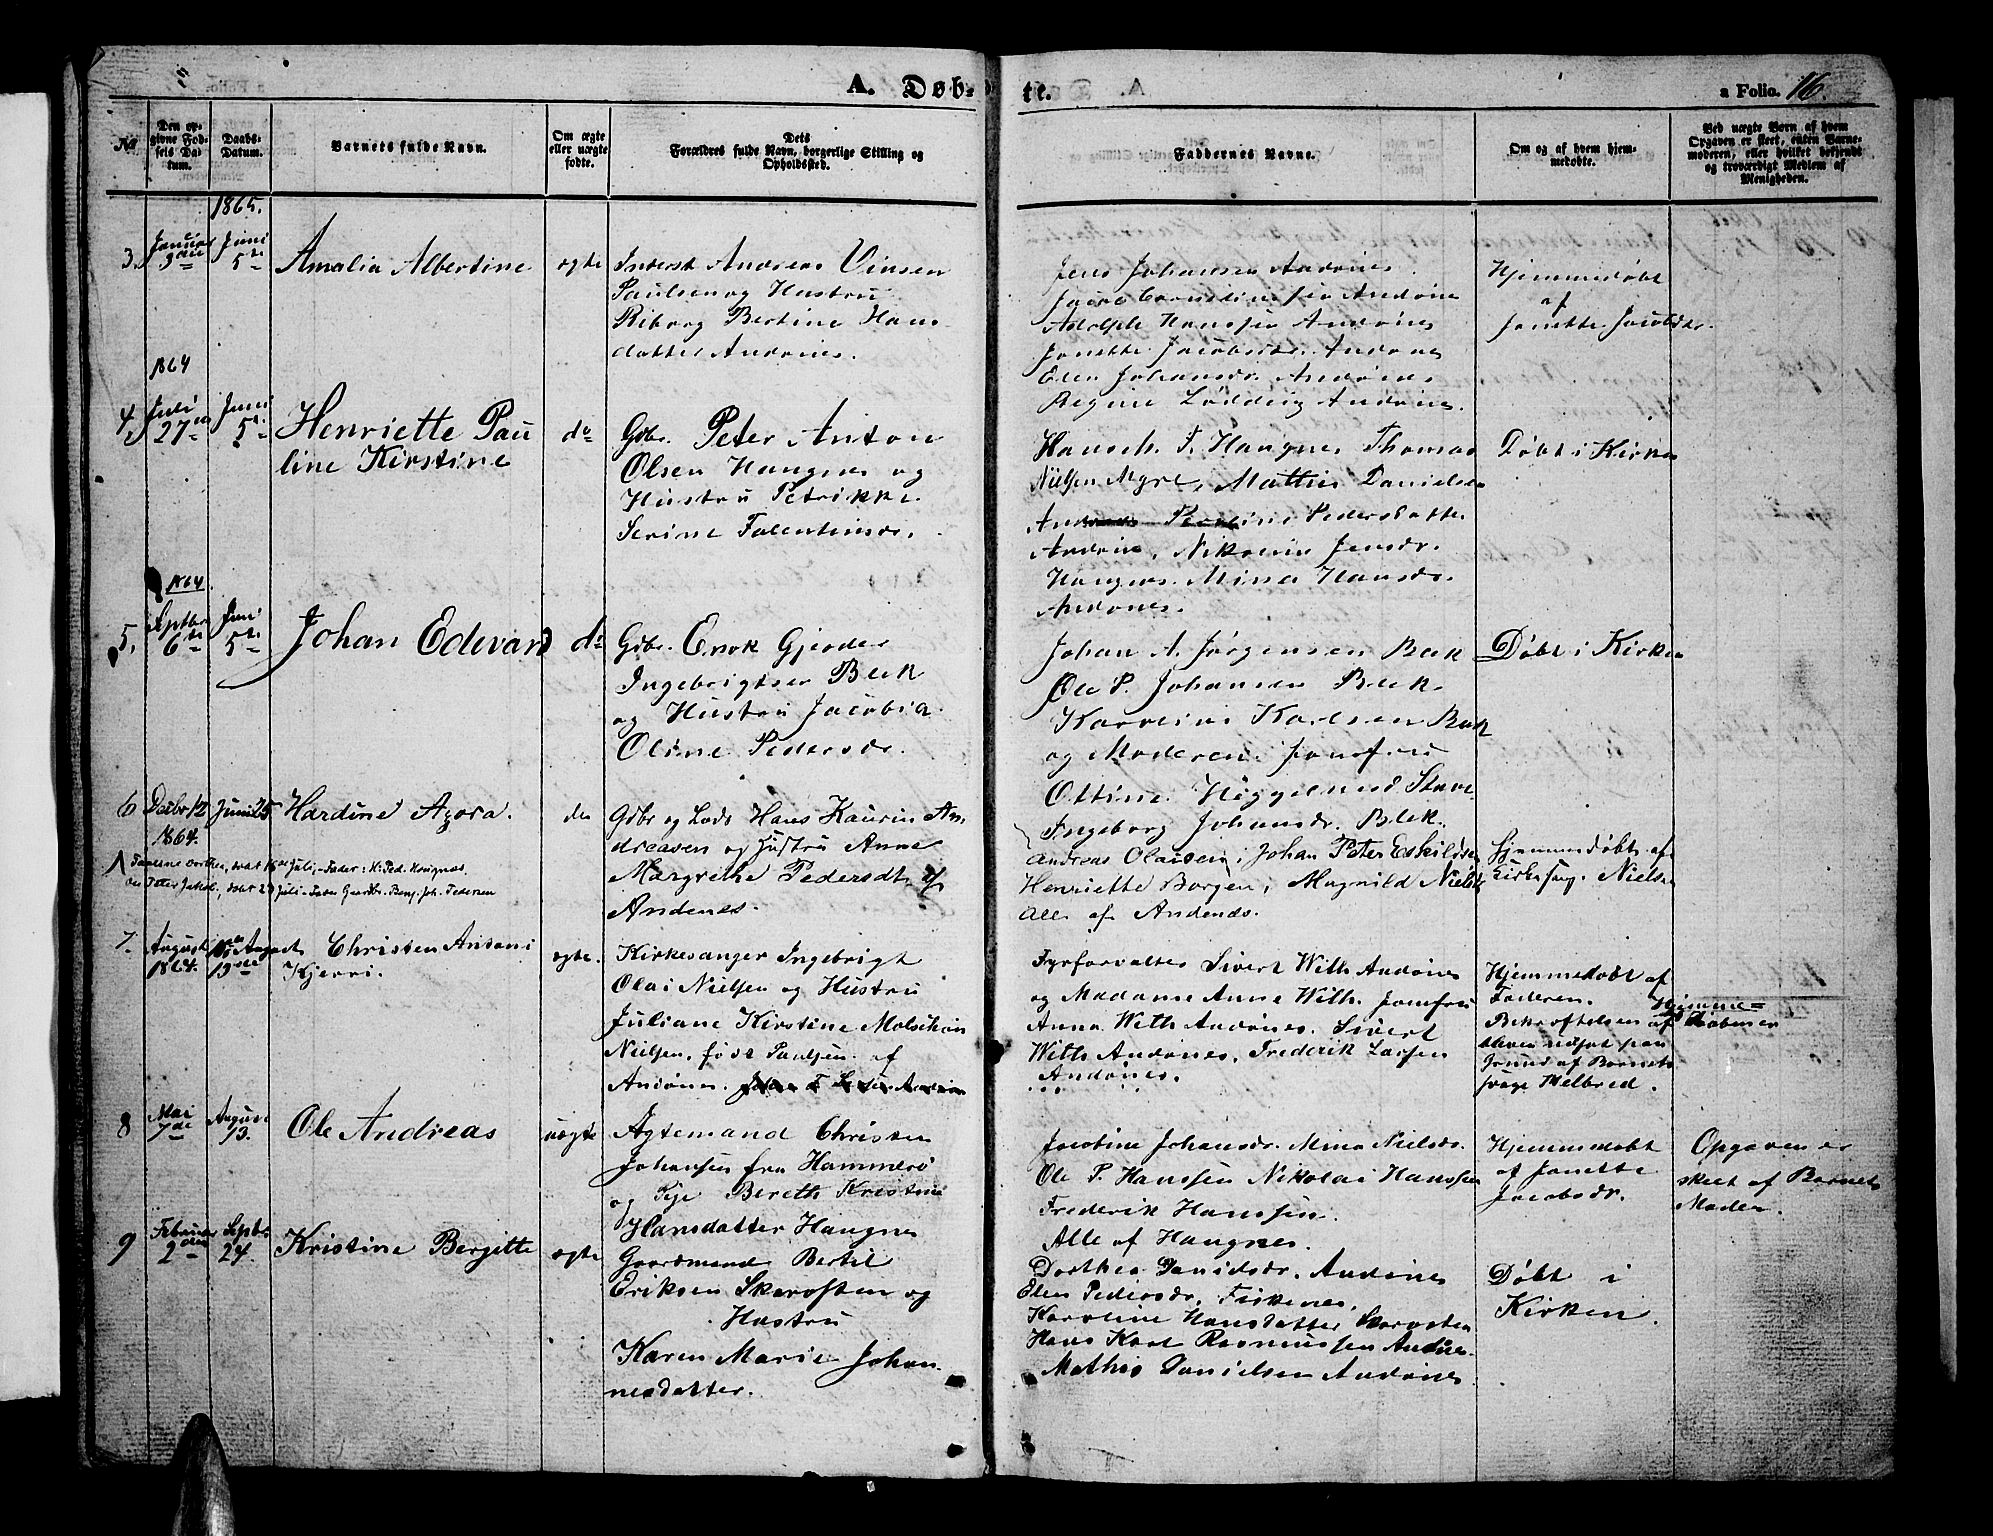 A. Døb-
te.
a Folio. 16.
№
Den op-
givne Fød-
sels Da-
tum.
Daabs-
Datum.
Barnets fulde Navn.
Om ægte
eller uægte
fødte.
Dets
Forældres fulde Navn, borgerlige Stilling og
Opholdssted.
Faddernes Navne.
Om og af hvem hjem-
medøbte.
Ved uægte Børn af hvem
Opgaven er skeet, enten Barne-
moderen, eller hvilket bekjendt
og troværdigt Medlem af
Menigheden.
1865.
3. Januar Juni
5te
Amalia Albertine
ægte
Inderst Andreas Vinsen
Paulsen og Hustru
Riborg Bertine Hans
datter Andønes.
Jens Johansen Andønes
Andønes
Adolph Hanssen Andønes
Janette Jacobsdr. Andønes
Elen Johansdr. Andønes
Regine Lødding Andønes.
Hjemmedøbt
af
Janette Jacobsdr.
1864
4, Juli 27 Juni 5te
Henriette Pau
line Kirstine
do
Gdbr. Peter Anton
Olsen Haugnes og
Hustru Petrikke
Serine Falentinsdr.
Hansch. F. Haugnes Thomas
Nielsen Myre, Mathis Danielsen
Pedersdatter
Andønes, Nikoline Jensdr.
Haugnes. Mina Hansdr.
Andønes.
Døbt i Kirken
1864
5, Septbr 6te Juni 5te
Johan Edevard
do
Gdbr. Enok Gjeoder
Ingebrigtsen Bleik
og Hustru Jacobia
Oline Pedersdr.
Johan A. Jørgensen Bleik
Ole P. Johansen Bleik.
Karolini Karlsen Bleik
og Moderen. Jomfru
Ottine
Ingeborg Johansdr. Bleik.
Døbt i Kirken
6 Decbr 12 1864. Juni 25
Hardine Agora.
do
Gdbr og Lods Hans Kaurin An
dreasen og Hustru Anne
Margrethe Pedersdtr af
Andenes.
Andreas Olaisen, Johan Peter Eskildsen
Henriette Borgen, Magnild Nielsd
alle af Andenæs.
Hjemmedøbt af
Kirkesang. Nielsen
7. August 1864. August 13de
Christen Antoni
Kjerri.
ægte.
Kirkesanger Ingebrigt
Olai Nielsen og Hustru
Juliane Kirstine Molschøn
Nielsen, født Paulsen af
Andønes.
Fyrforvalter Sivert With Andønes
og Madame Anne With. Jomfru
Anna With Andønes. Sivert
With Andønes. Frederik Larsen
Andønes.
Hjemmedøbt af
Faderen.
Bekræftelsen af Hjemme=
døbenen
bleven udsat paa
Grund af Barnets
svage Helbred.
8 Mai 7de August 13.
Ole Andreas
uægte
Ægtemand Christen
Johansen fra Hammerø
og Pige Bereth Kristine
Hansdatter Haugnes
Jacobine Johansdr. Mina Nielsdr.
Ole P. Hanssen Nikolai Hanssen
Frederik Hanssen.
Alle af Haugnes.
Hjemmedøbt
af Janette
Jacobsdr.
Opgaven er
skeet af Barnets
Moder.
9 Februar 2den Septbr 24.
Kristine Bergitte
ægte
Gaardmand Bertil
Eriksen Skarvsten og
Hustru
Karen Marie Johan
nesdatter.
Dorthea Danielsdr. Andønes
Elen Pedersdr. Fiskenes.
Karoline Hansdatter Skarvsten
Hans Karl Rasmussen Andønes
Mathis Danielsen Andønes
Døbt i
Kirken.